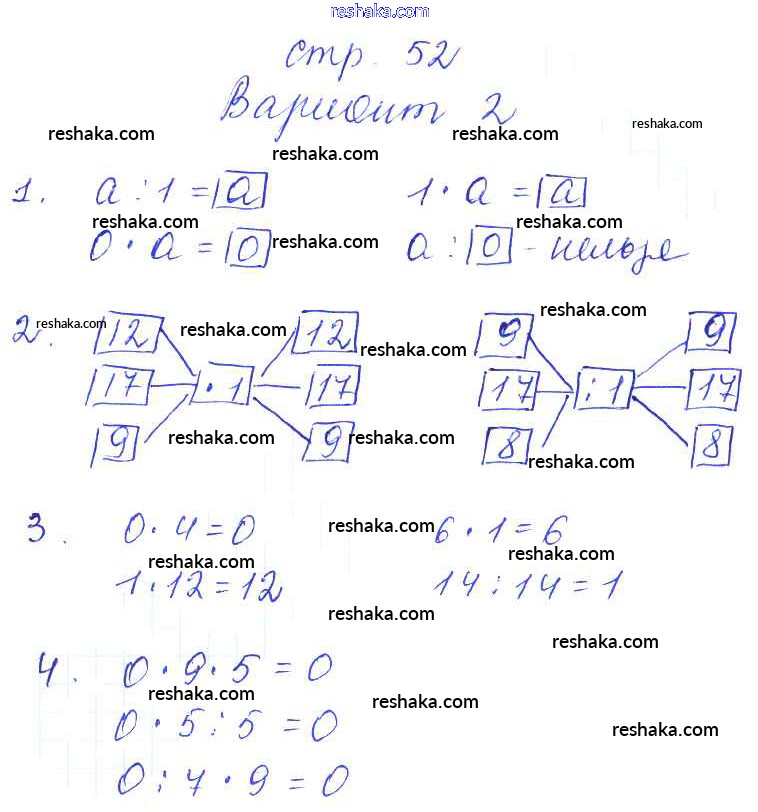 reshaka.com
стр. 52
Вариант 2
reshaka.com reshaka.com reshaka.com
reshaka.com
1. a : 1 = a 1 · a = a
reshaka.com reshaka.com
0 · a = 0 reshaka.com a : 0 - нельзя
reshaka.com
2. reshaka.com 12 reshaka.com 12 9 9
reshaka.com
17 · 1 17 17 : 1 17
9 reshaka.com 9 reshaka.com 8 8
reshaka.com
3. 0 · 4 = 0 reshaka.com 6 · 1 = 6
reshaka.com reshaka.com
1 · 12 = 12 14 : 14 = 1
reshaka.com
reshaka.com
4. 0 · 9 · 5 = 0
reshaka.com reshaka.com
0 · 5 : 5 = 0 reshaka.com
0 : 7 · 9 = 0